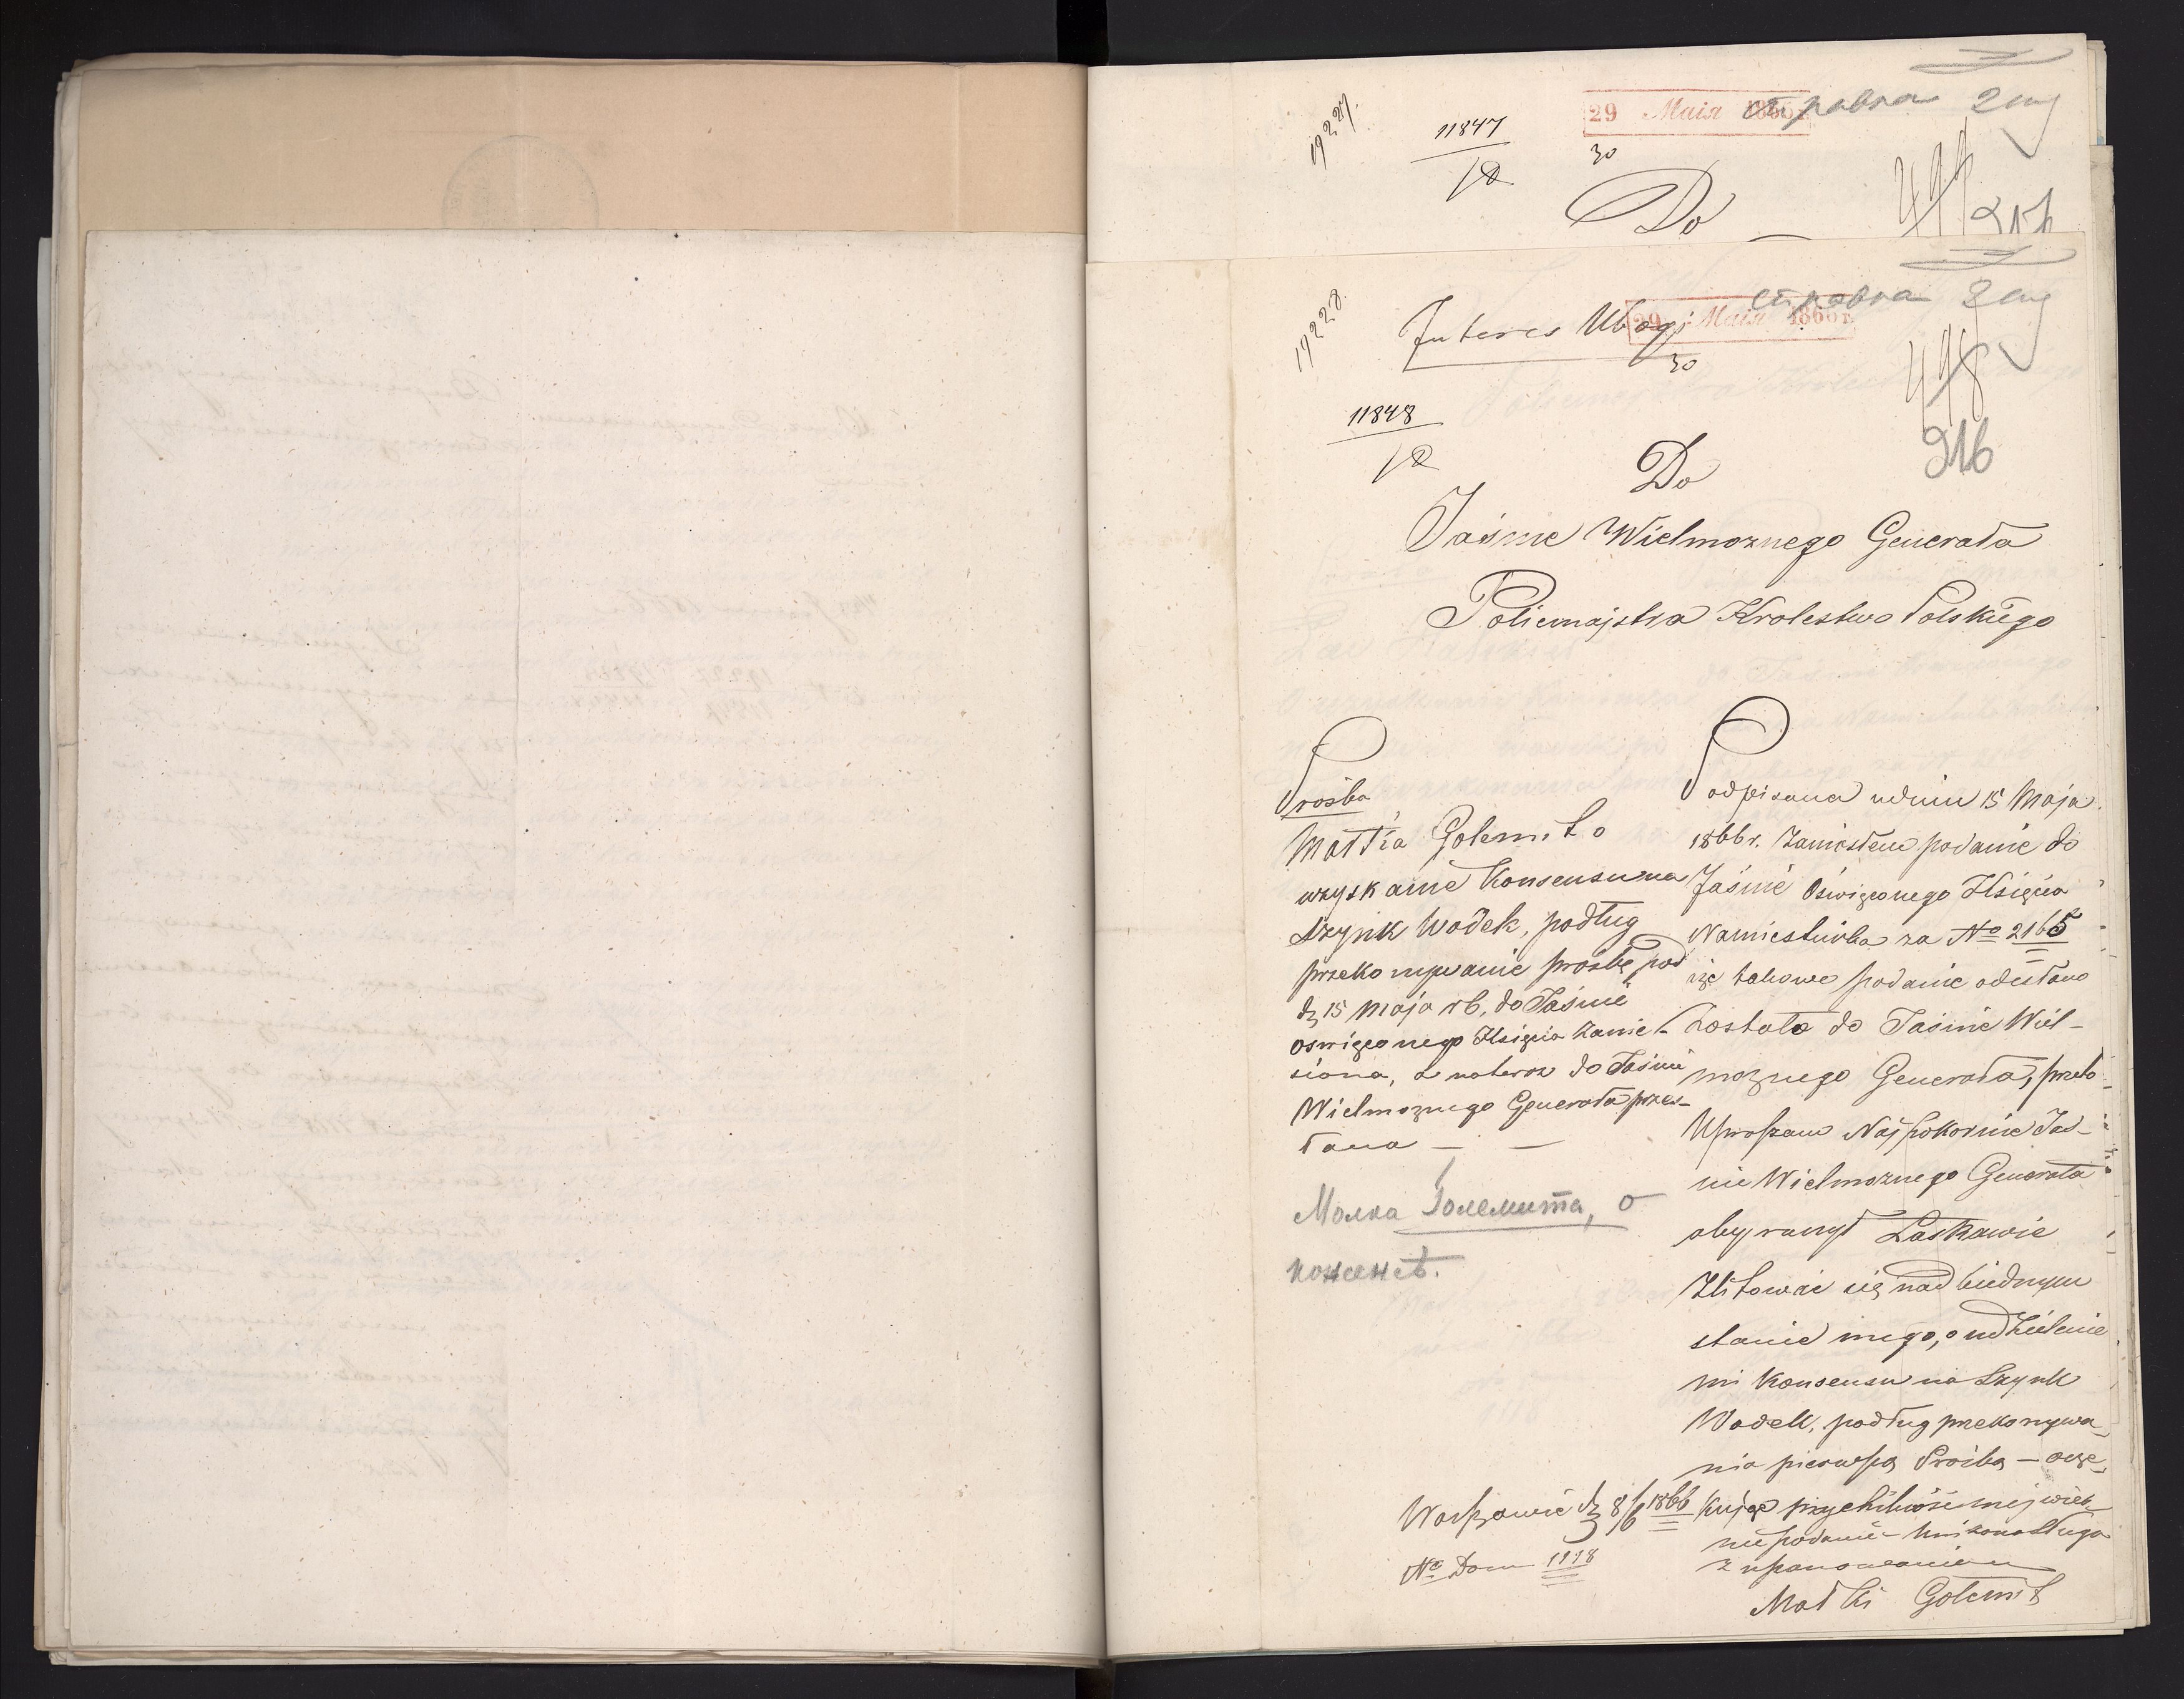 19227.
11847
18
29 Мая 1866
30
справка 2 ст
497
215
Do
19228.
Interes Ubogi
29 Мая 1866 г.
30
справка 2 ст
498
216
11848
18
Do
Jaśnie Wielmoznego Generała
Policmajstra Krolestwa Polskiego
Prośba
Małka Golemit o
uzyskanie Konsensu na
Szynk Wodek, podług
przekonywanie prosbę pod
d. 15 Maja rb, do Jasnie
oswięconego Xsięcia zanie-
siona, a na teraz do Jasnie
Wielmoznego Generała przes-
łana — —
Малка Големита, о
консенсъ.
Podpisana w dniu 15 Maja
1866 r. Zaniesłem podanie do
Jaśnie Oświęconego Xsięcia
Namiestnika za No 2165
iże takowe podanie odesłane
zostało do Jasnie Wiel-
moznego Generała, przeto
Upraszam Najpokornie Jas-
nie Wielmoznego Generała
aby raczył Łaskawie
Zlitować się nad biednym
stanie mego, o udzielenie
mi Konsensu na Szynk
Wodek, podług przekonywa-
nia pierwszą Prośbą — ocze-
kując przychilności mej
podanie
z uszanowaniem
Małki Golemit
Warszawie d. 8/6 1866
No Dom 1118